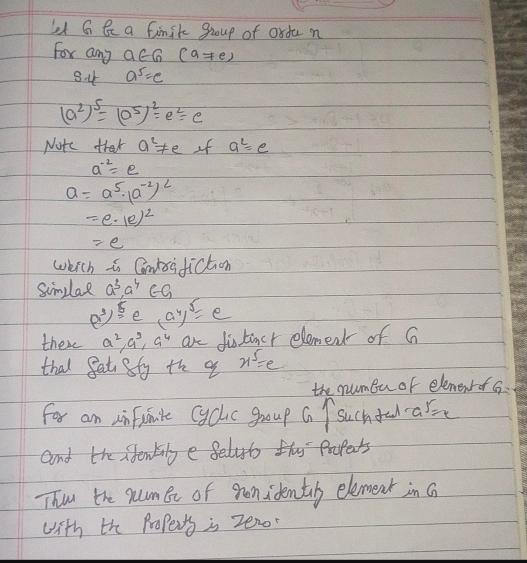 let G be a finite group of order n
For any a∈G (a≠e)
s.t a⁵=e
(a²)⁵=(a⁵)²=e²=e
Note that a²≠e if a²=e
a⁻²=e
a= a⁵·(a⁻²)²
=e·(e)²
=e
which is Contradiction
Similar a³,a⁴ ∈G
(a³)⁵=e (a⁴)⁵=e
these a²,a³,a⁴ are distinct element of G
that satisfy the x⁵=e
the number of element of G
For an infinite Cyclic group G ↑ such that a⁵=e
and the identity e this
Thus the number of non identity element in G
with the Property is zero.